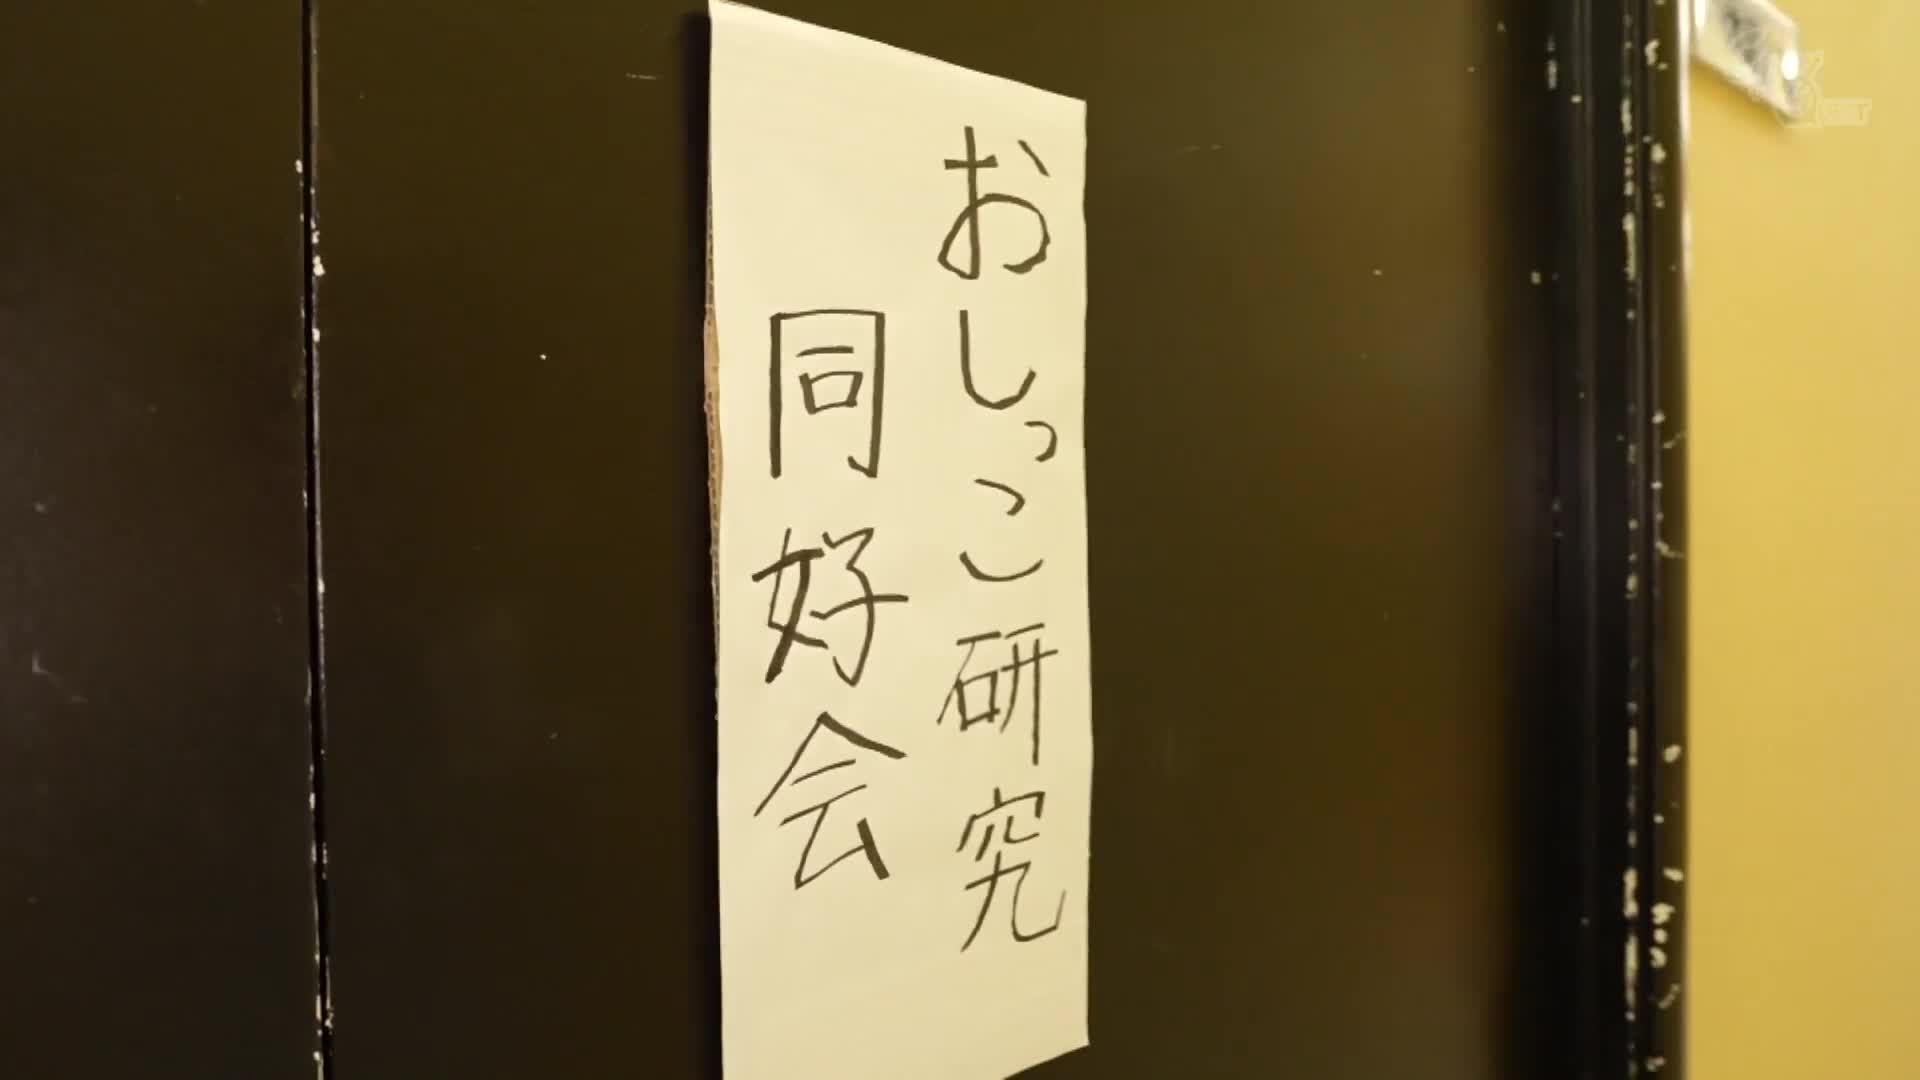 おしっこ研究
同好会